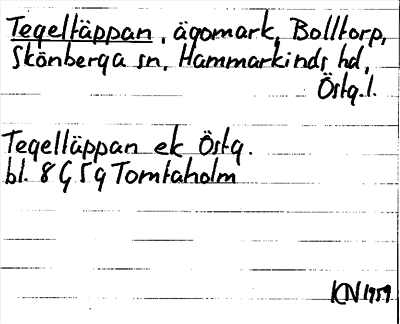 Tegeltäppan, ägomark, Bolltorp,
Skönberga sn, Hammarkinds hd,
Östg.l.
Tegeltäppan ek Östg.
bl. 8 G 5 g Tomtaholm
KN 1959